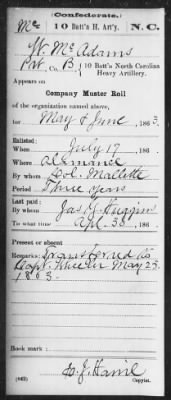 (Confederate.)
Mc 10 Batt'n H. Art'y. N.C.
W. McAdams
Pvt, Co. B, 10 Batt'n North Carolina
Heavy Artillery.
Appears on
Company Muster Roll
of the organization named above,
for May & June, 1863.
Enlisted:
When July 17, 186 .
Where Alamance
By whom Col. Mallette
Period Three years
Last paid:
By whom Jas. J. Huggins
To what time Apl. 30, 186 .
Present or absent
Remarks: Transferred to
Capt. Wheeler May 23.
1863.
Book mark:
(642) Copyist.